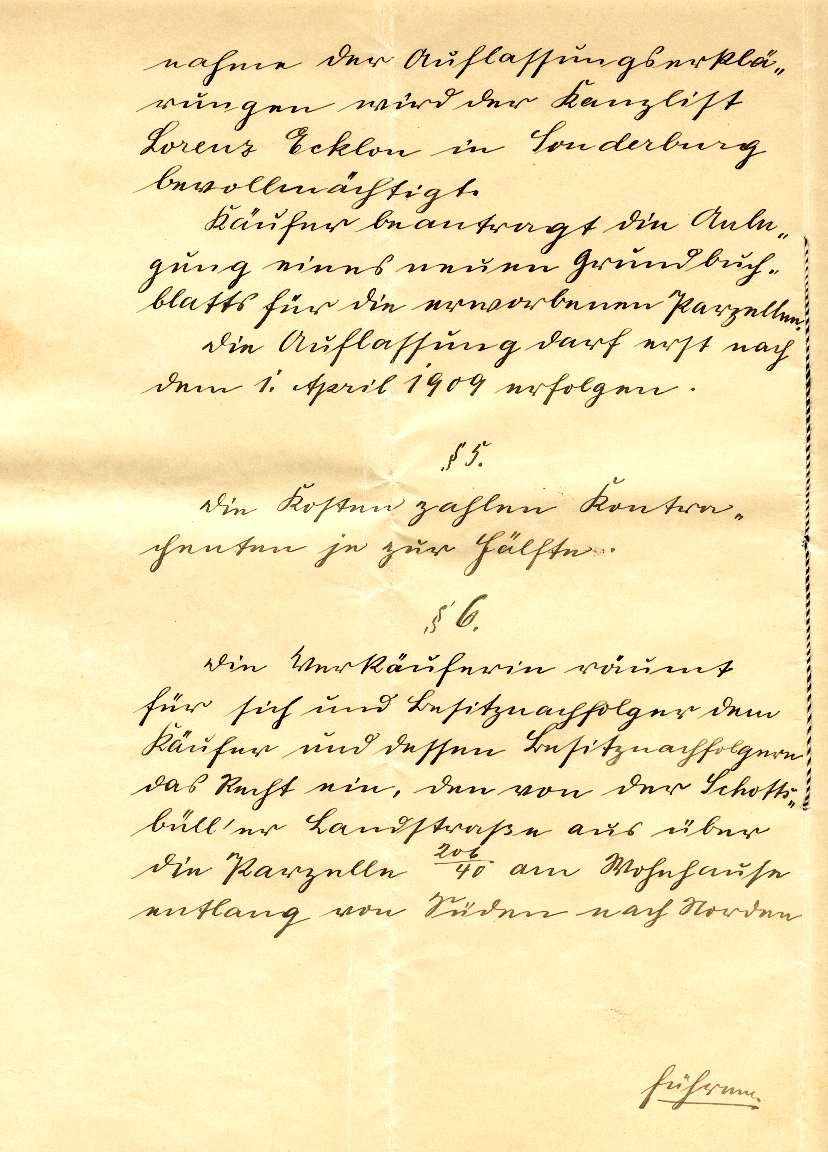 nahme der Auflassungserklä„
rungen wird der Kanzlist
Lorenz Ecklon in Sonderburg
bevollmächtigt.
Käufer beantragt die Anle„
gung eines neuen Grundbuch„
blatts für die erworbenen Parzellen.
Die Auflassung darf erst nach
dem 1. April 1909 erfolgen.
§ 5.
Die Kosten zahlen Kontra„
chenten je zur Hälfte.
§ 6.
Die Verkäuferin räumt
für sich und Besitznachfolger dem
Käufer und dessen Besitznachfolgern
das Recht ein, den von der Schotts„
büll'er Landstraße aus über
die Parzelle 206/40 am Wohnhause
entlang von Süden nach Norden
führen.